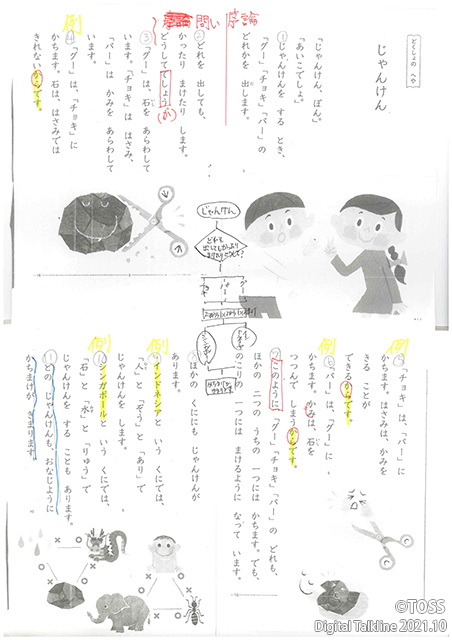 どくしょの へや
じゃんけん
「じゃんけん、ぽん。」
「あいこでしょ。」
①じゃんけんを する とき、
「グー」「チョキ」「パー」の
どれかを 出します。
序論
問い
②どれを 出しても、
かったり まけたり します。
どうしてでしょう。
(か)
③「グー」は、石を あらわして
います。「チョキ」は はさみ、
「パー」は かみを あらわして
います。
例
④「グー」は、「チョキ」に
かちます。石は、はさみでは
きれないからです。
じゃんけん
例
⑤「チョキ」は、「パー」に
かちます。はさみは、かみを
きる ことが
できるからです。
例
⑥「パー」は、「グー」に
かちます。かみは、石を
つつんで しまうからです。
⑦このように「グー」「チョキ」「パー」の どれも、
ほかの 二つの うちの 一つには かちます。でも、
のこりの 一つには まけるように なって います。
ほかの くににも じゃんけんが
あります。
例
インドネシアと いう くにでは、
「人」と「ぞう」と「あり」で
じゃんけんを します。
例
シンガポールと いう くにでは、
「石」と「水」と「りゅう」で
じゃんけんを する ことも あります。
どの じゃんけんも、おなじように
かちまけが きまります。
©TOSS
Digital Talkline 2021.10